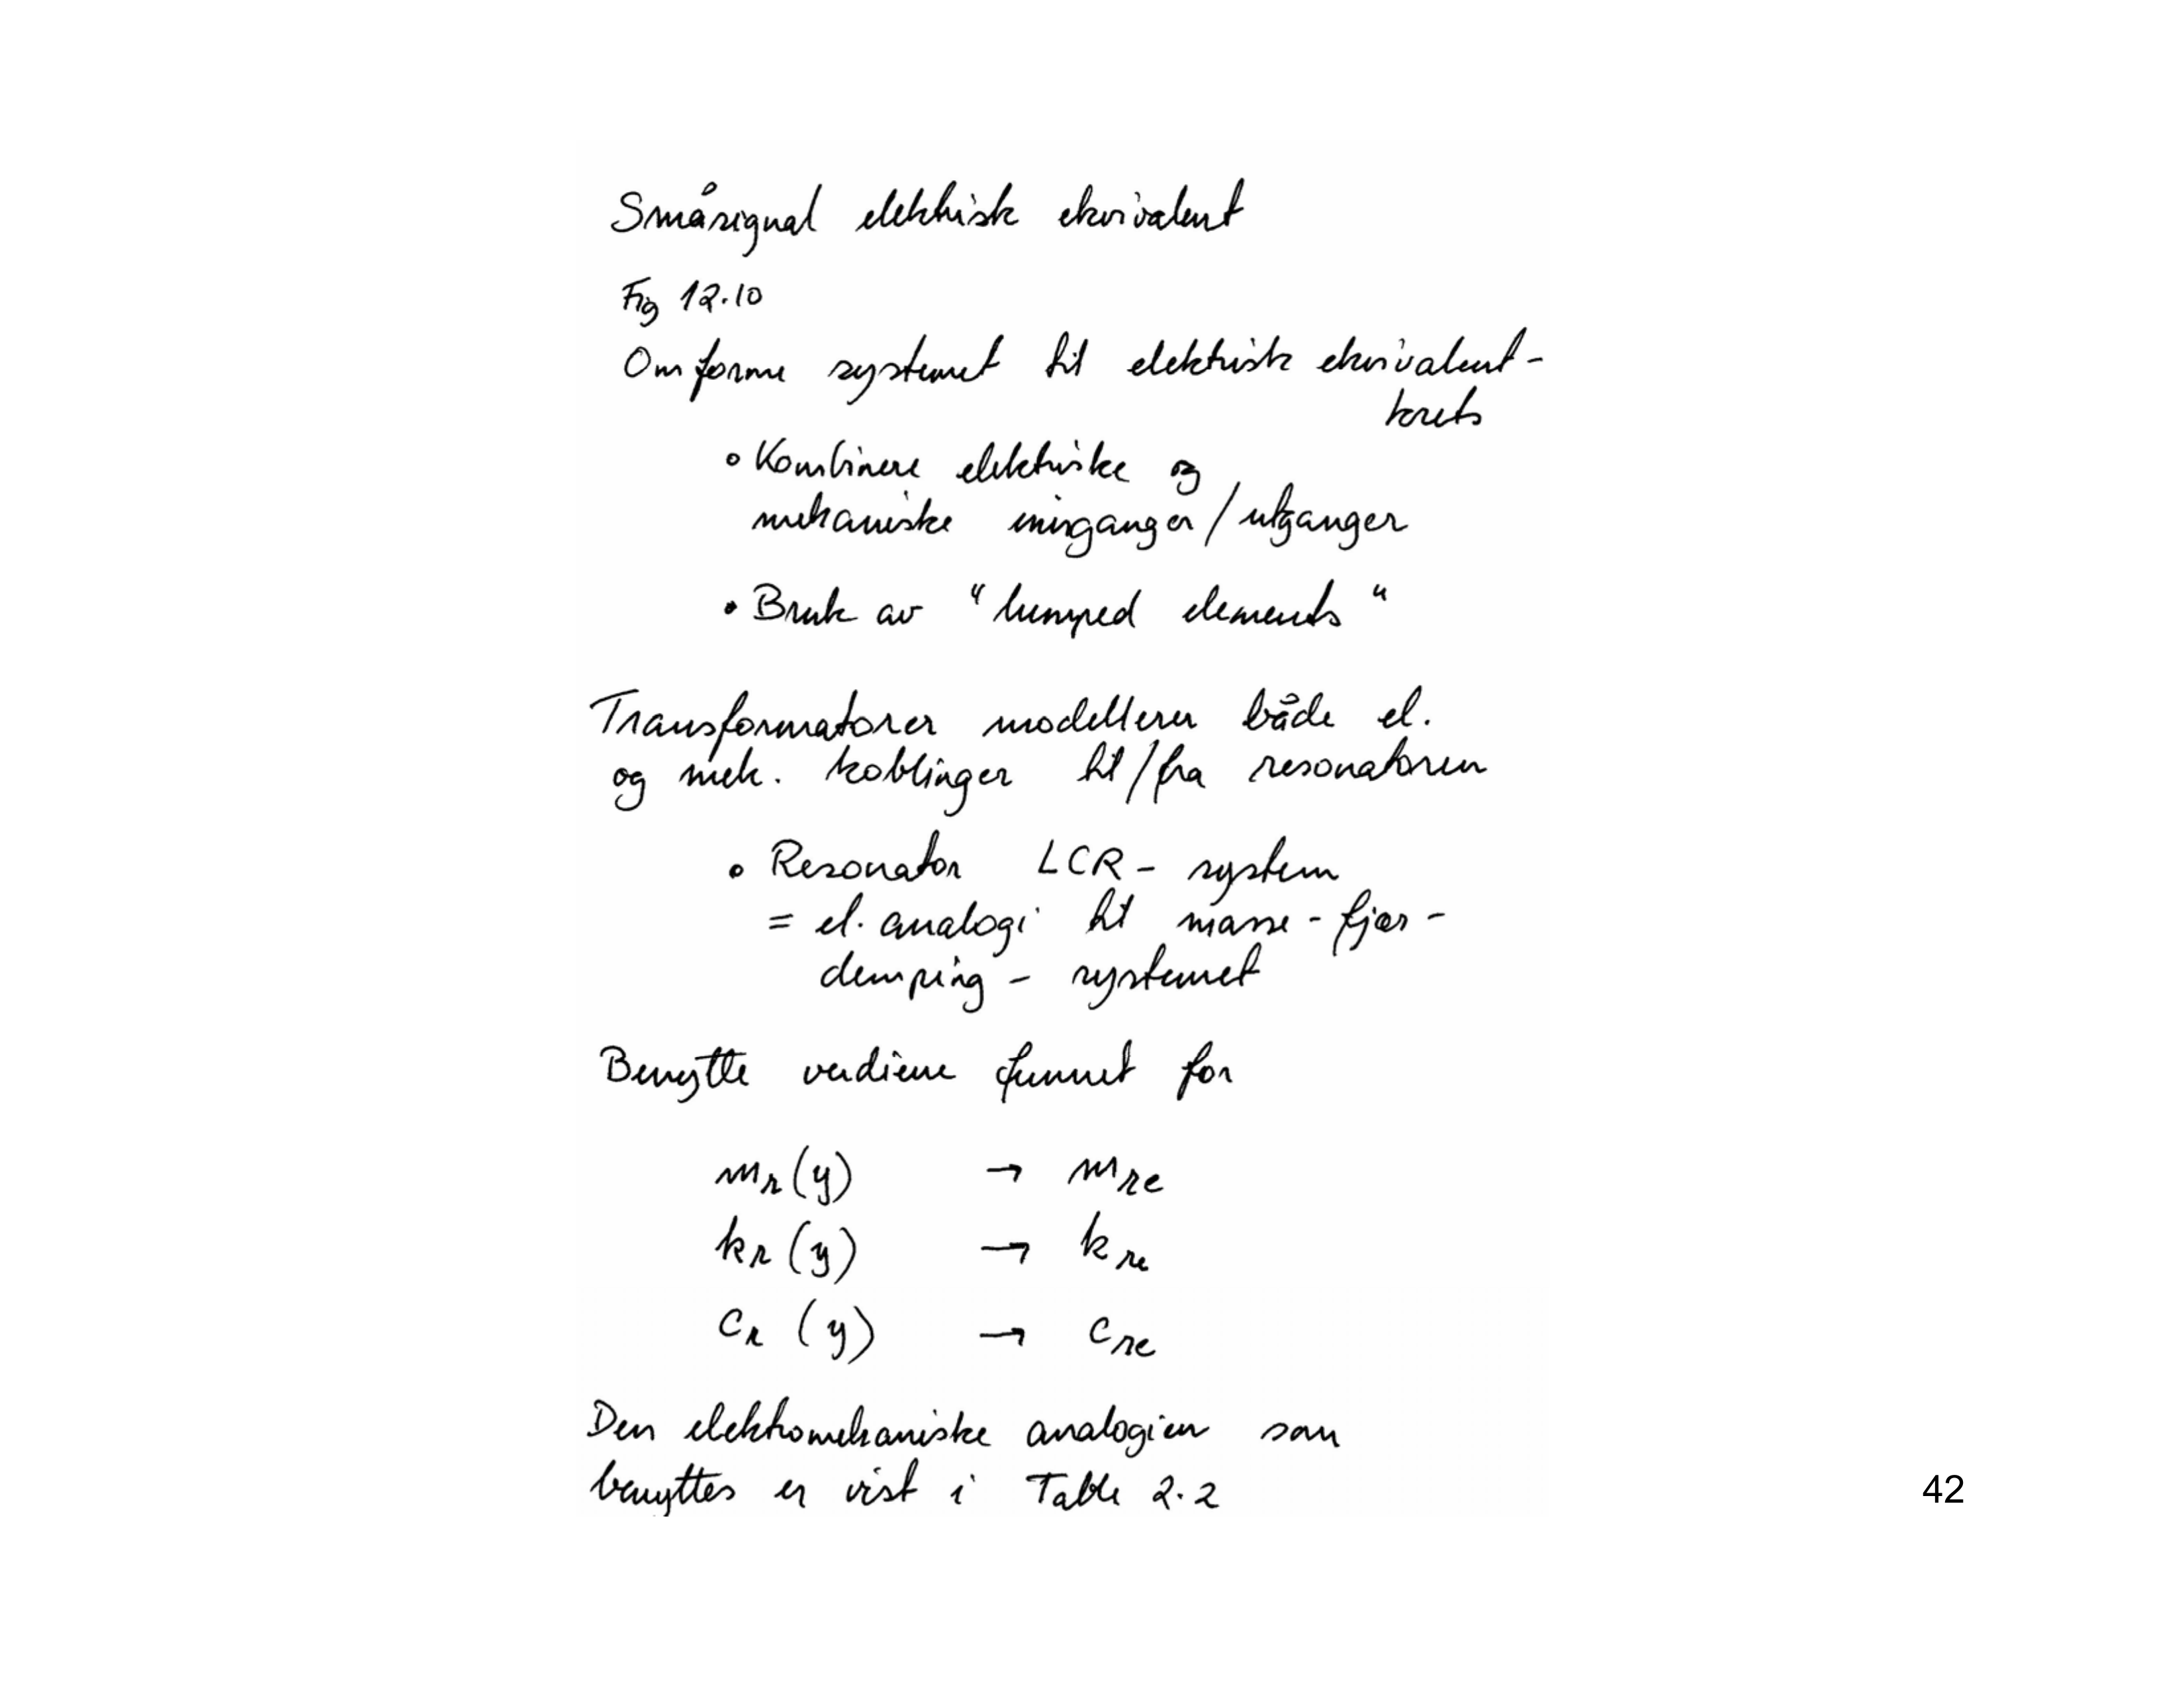 Småsignal elektrisk ekvivalent
Fig 12.10
Omforme systemet til elektrisk ekvivalent-
krets
• Kombinere elektriske og
mekaniske innganger/utganger
• Bruk av "lumped elements"
Transformatorer modellerer både el.
og mek. koblinger til/fra resonatoren
• Resonator LCR-system
= el. analogi til masse-fjær-
demping-systemet
Benytte verdiene funnet for
m_r(y) → m_re
k_r(y) → k_re
c_r(y) → c_re
Den elektromekaniske analogien som
benyttes er vist i Table 2.2
42